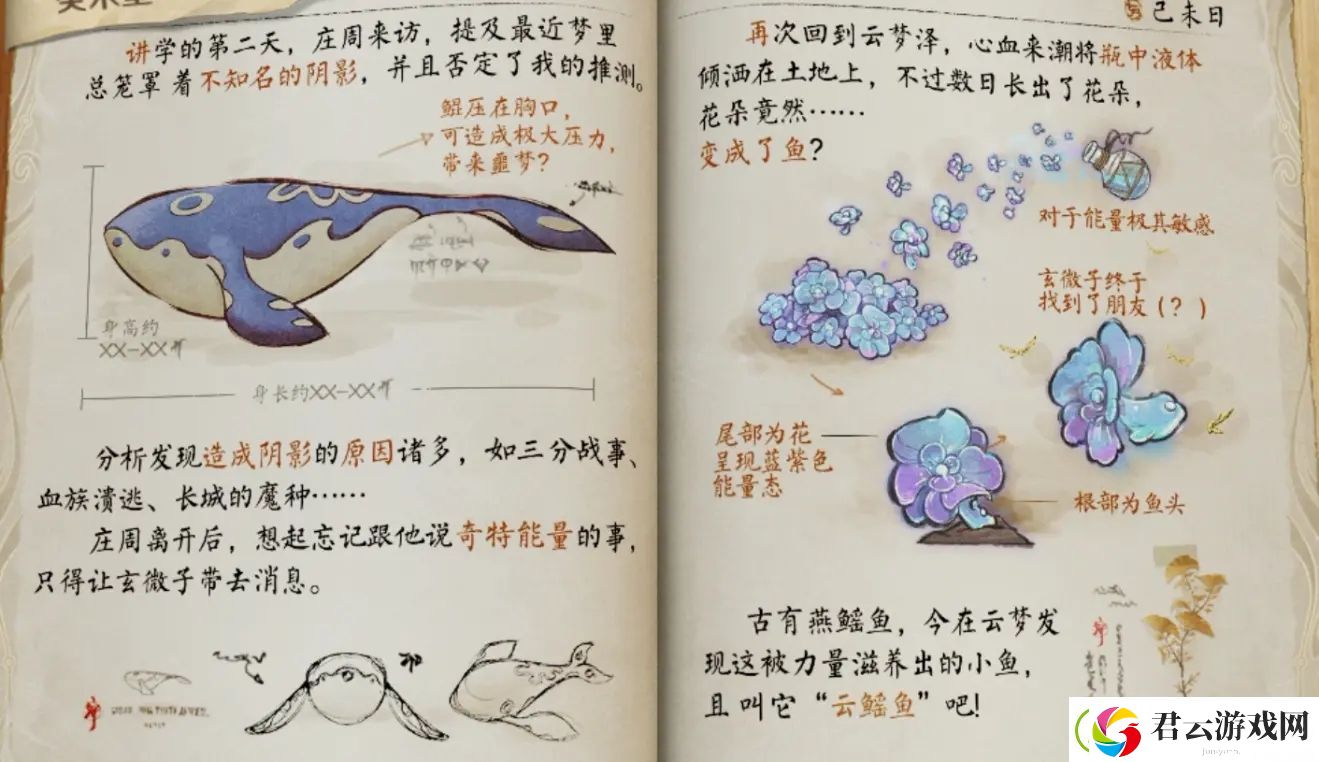 讲学的第二天，庄周来访，提及最近梦里
总笼罩着不知名的阴影，并且否定了我的推测。
鲲压在胸口，
可造成极大压力，
带来噩梦？
身高约
XX-XX
身长约XX-XX
分析发现造成阴影的原因诸多，如三分战事、
血族溃逃、长城的魔种……
庄周离开后，想起忘记跟他说奇特能量的事，
只得让玄微子带去消息。
己未日
再次回到云梦泽，心血来潮将瓶中液体
倾洒在土地上，不过数日长出了花朵，
花朵竟然……
变成了鱼？
对于能量极其敏感
玄微子终于
找到了朋友（？）
尾部为花
呈现蓝紫色
能量态
根部为鱼头
古有燕鳐鱼，今在云梦发
现这被力量滋养出的小鱼，
且叫它“云鳐鱼”吧！
君云游戏网